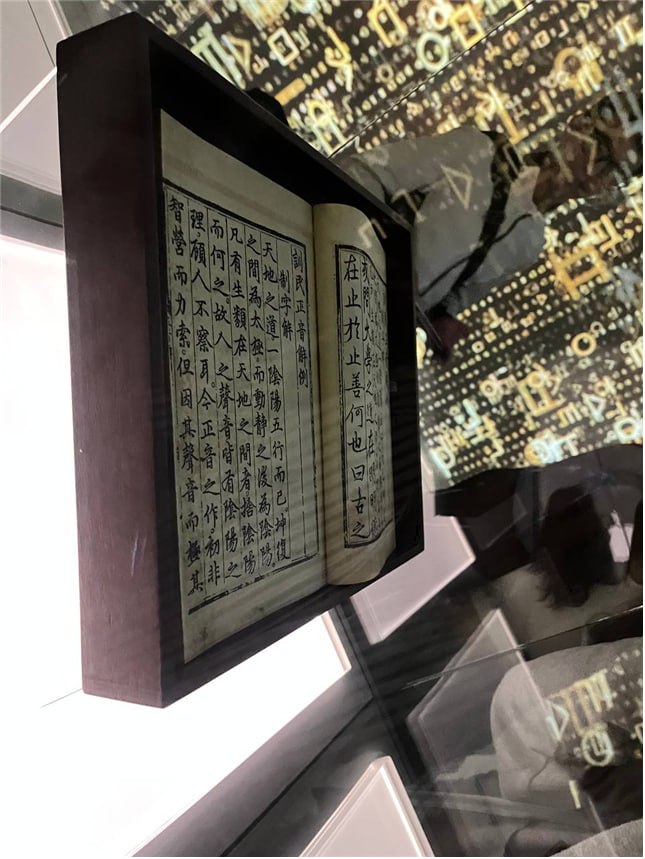 問大學之道在
在止於止善何也曰古之
訓民正音解例
制字解
天地之道一陰陽五行而已。坤復
之間為太極。而動靜之後為陰陽。
凡有生類在天地之間者。捨陰陽
而何之。故人之聲音皆有陰陽之
理。顧人不察耳。今正音之作。初非
智營而力索。但因其聲音而極其